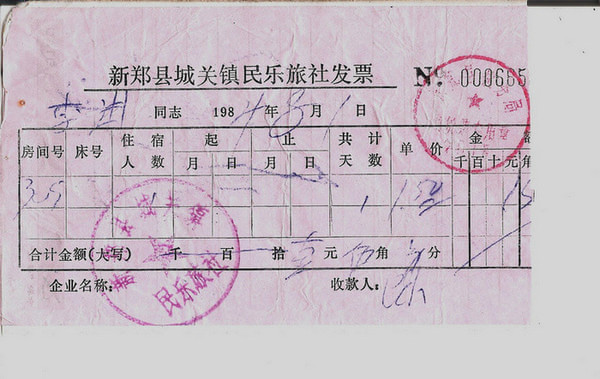 新郑县城关镇民乐旅社发票 No. 000665
李 同志 1984年8月1日
房间号 床号 住宿人数 起 月 日 止 月 日 共计天数 单价 金额 千 百 十 元 角
1 1 1.50
合计金额(大写) 千 百 拾 壹 元 伍 角 分
企业名称: 收款人:
民乐旅社